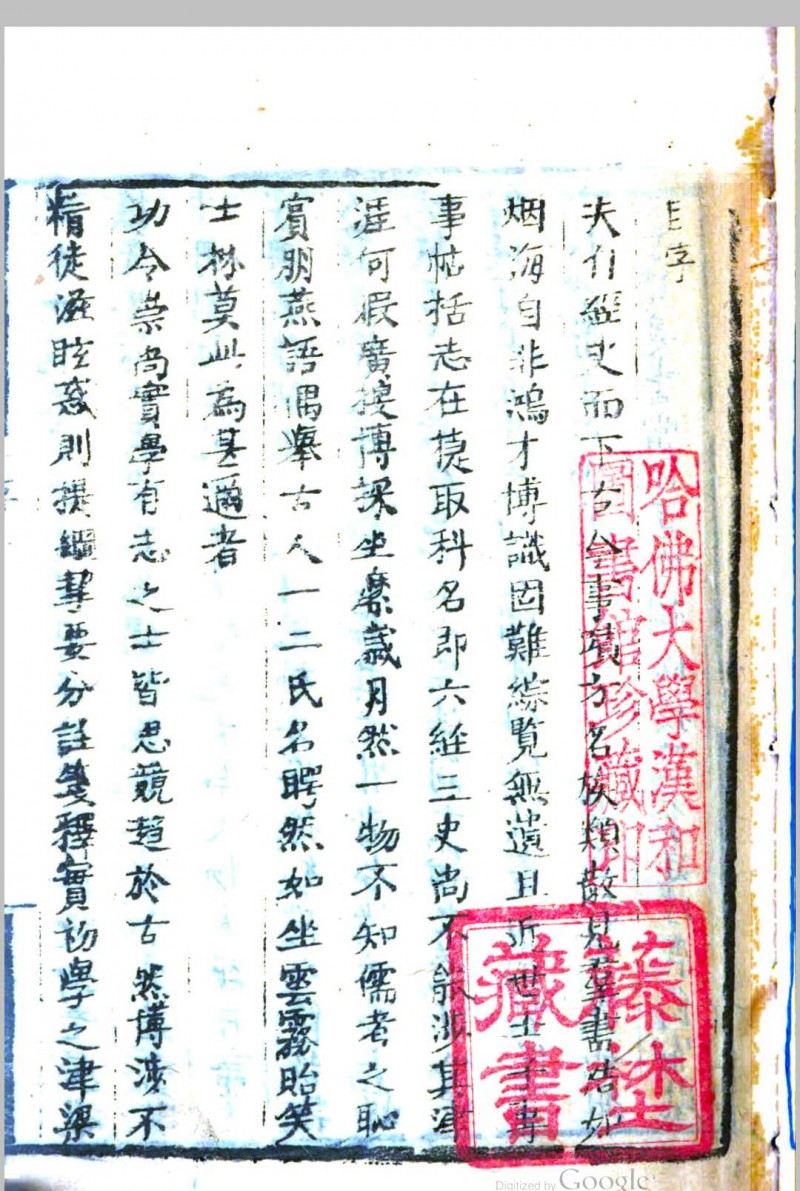 自序
夫經史而下古今事蹟方名族類散見羣書浩如
烟海自非鴻才博識固難綜覽無遺且近世士子專
事帖括志在取科名即六經三史尚不能涉其津
涯何暇廣搜博採坐縻歲月然一物不知儒者之恥
賓朋燕語偶舉古人一二氏名然如坐雲霧貽笑
士林莫此為甚邇者
功令崇尚實學有志之士皆思競趨於古然博涉不
精徒滋眩惑則提綱挈要分註箋釋實初學之津梁
哈佛大學漢和
圖書館珍藏印
藤
藏書
Digitized by Google